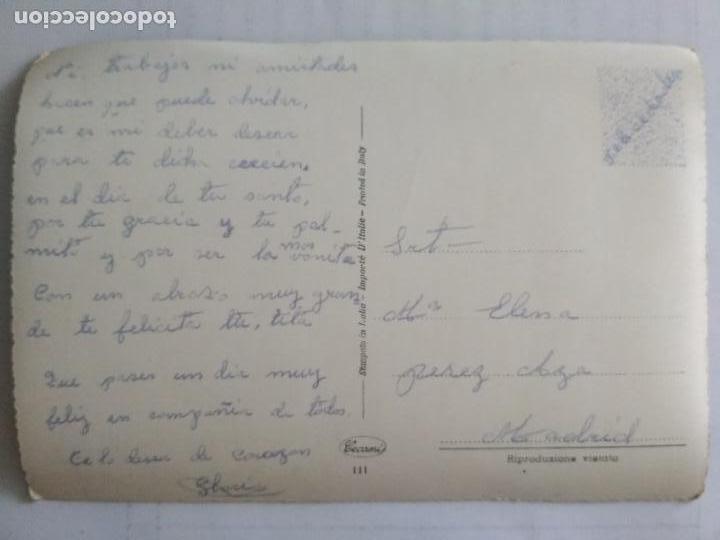 Ni trabajos ni amistades
hacen que puede olvidar,
que es mi deber desear
para ti dicha
en el dia de tu santo,
por tu gracia y tu pal-
mito y por ser la mas bonita
Con un abrazo muy gran
de te felicita tu, tita
Que pases un dia muy
feliz en compañia de todos.
de corazon
Gloria
Stampata in Italia - Importé D'Italie - Printed in Italy
Cecami
111
Srt
Mª Elena
perez Aza
Madrid
Riproduzione vietata
todocoleccion